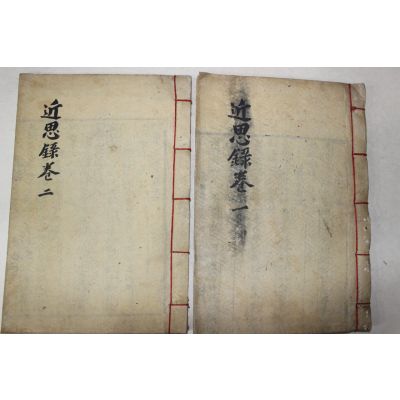 近思錄卷一
近思錄卷二